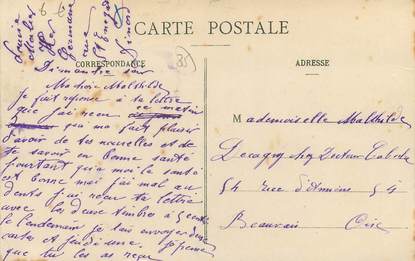 CARTE POSTALE
CORRESPONDANCE
ADRESSE
Dimanche soir
Ma chère Mathilde
Je fait réponse à ta lettre
que j'ai reçu ce matin
qui m'a fait plaisir
d'avoir de tes nouvelles et de
te savoir en bonne santé
pourtant que moi la santé
est bonne mais j'ai mal au
dents j'ai reçu ta lettre
avec les deux timbres à 5 cent
le lendemain je t'ai envoyer deux
cartes et jeudi une. Je pense
que tu les as reçu
Louise
Germaine
35
Mademoiselle Mathilde
Decagny chez Docteur
54 rue d'Amiens 54
Beauvais Oise